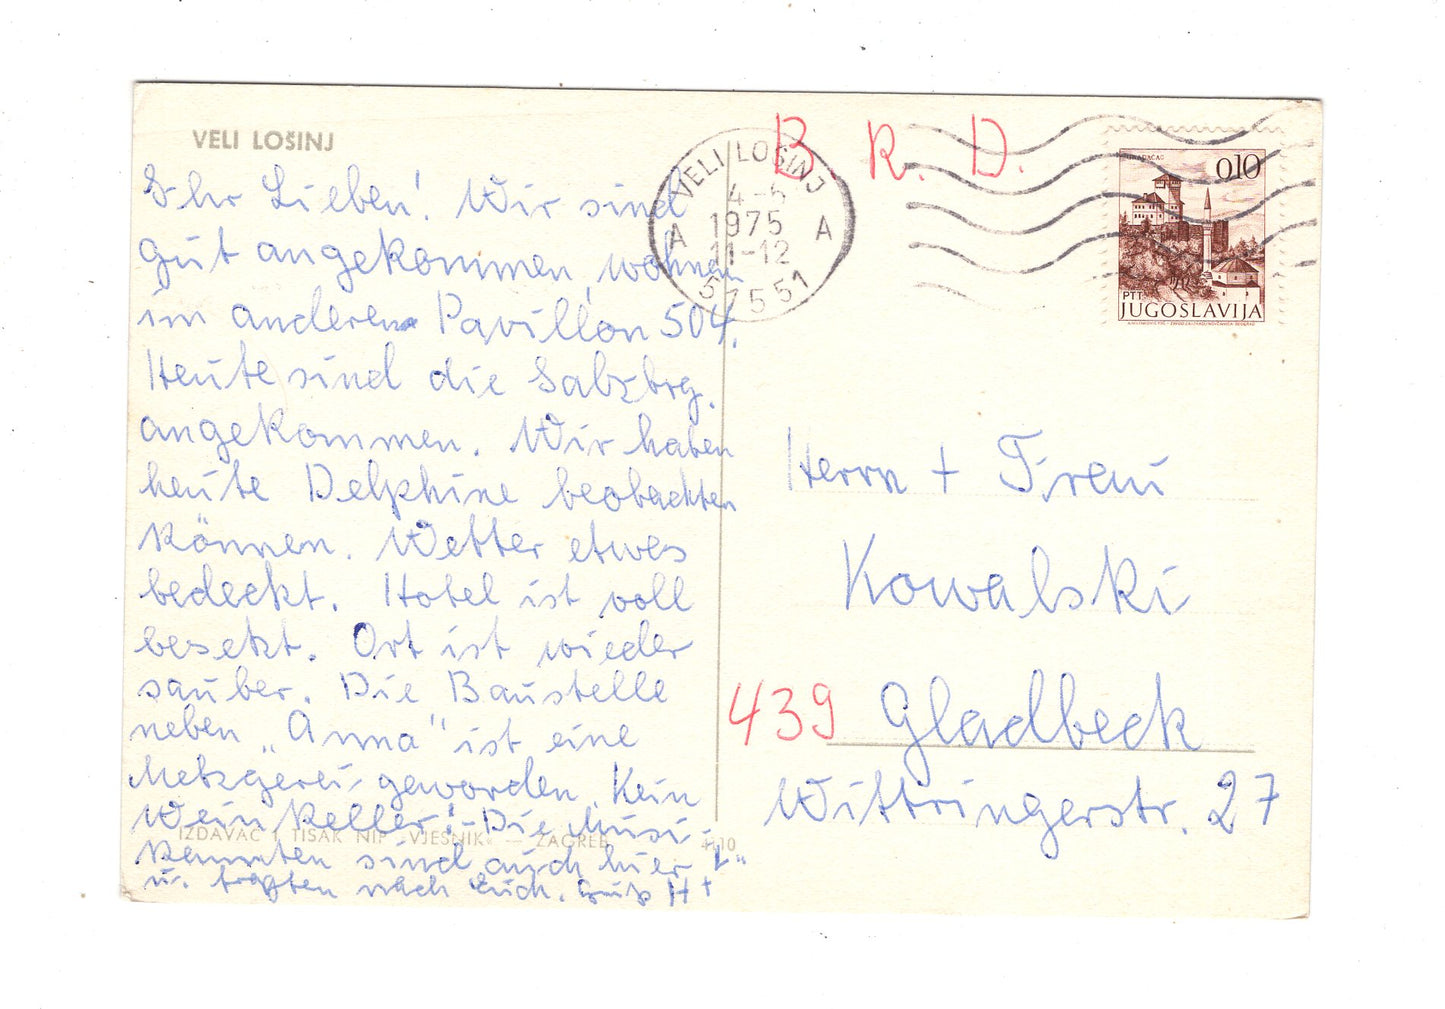 VELI LOŠINJ
Ihr Lieben! Wir sind
gut angekommen, wohnen
im anderen Pavillon 504.
Heute sind die Salzbrg.
angekommen. Wir haben
heute Delphine beobachten
können. Wetter etwas
bedeckt. Hotel ist voll
besetzt. Ort ist wieder
sauber. Die Baustelle
neben „Anna" ist eine
Metzgerei geworden. Kein
Weinkeller! - Die Musi-
kannten sind auch hier
u. fragten nach Euch. Gruß H +
IZDAVAČ I TISAK NIP »VJESNIK« — ZAGREB
4110
B. R. D.
VELI LOŠINJ
4-5
1975
A A
11-12
51551
GRADAČAC
0,10
PTT
JUGOSLAVIJA
Herrn + Frau
Kowalski
439 Gladbeck
Wittringerstr. 27